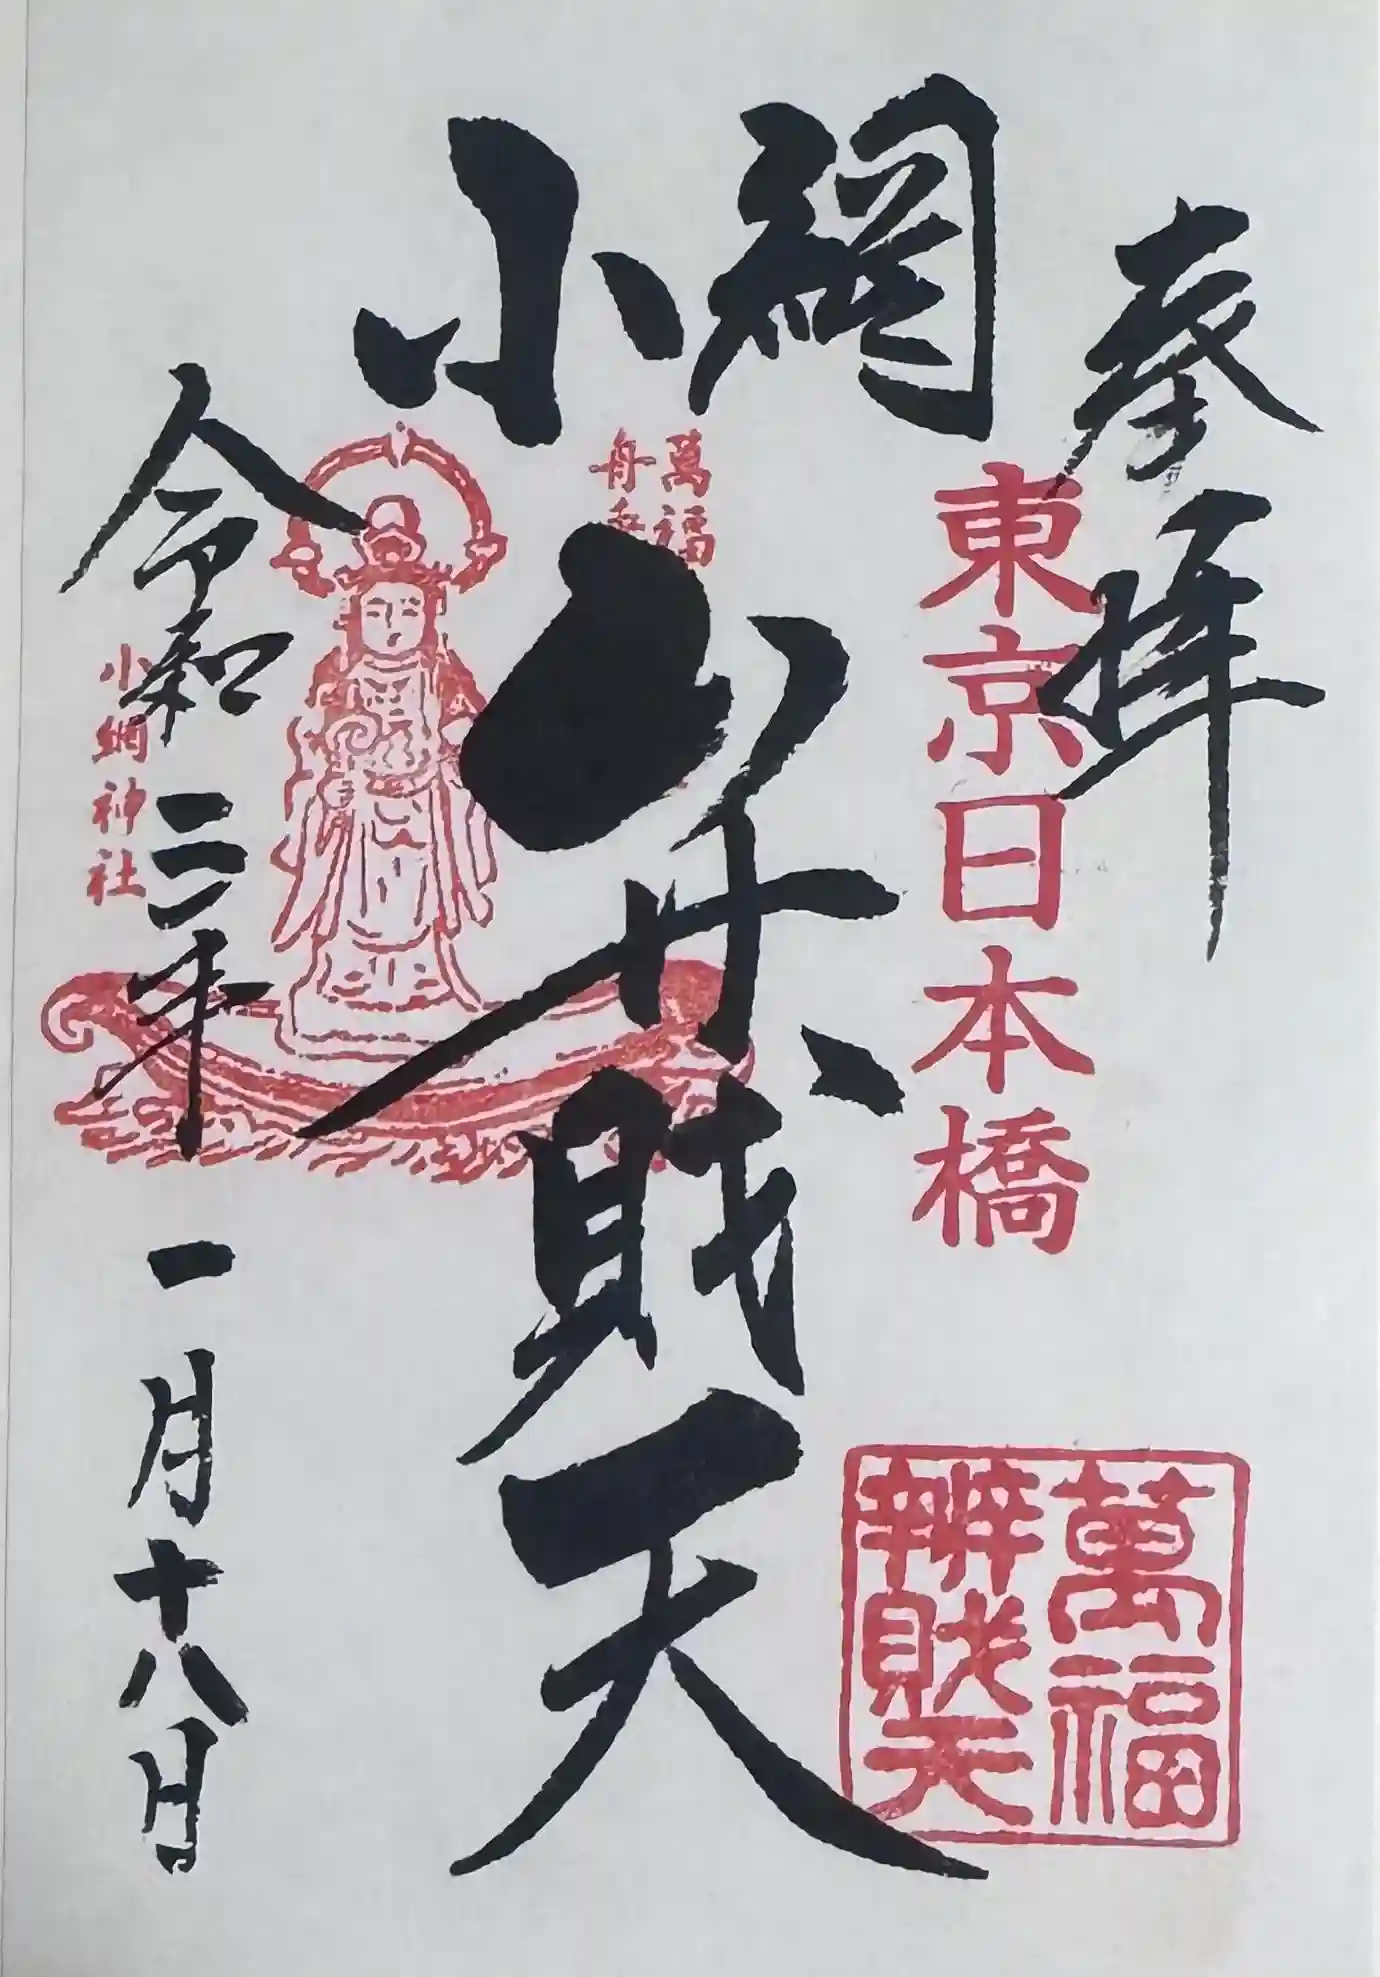 奉拝
東京日本橋
小網
弁財天
萬福
舟
小網神社
令和二年一月十八日
萬福
辨財天